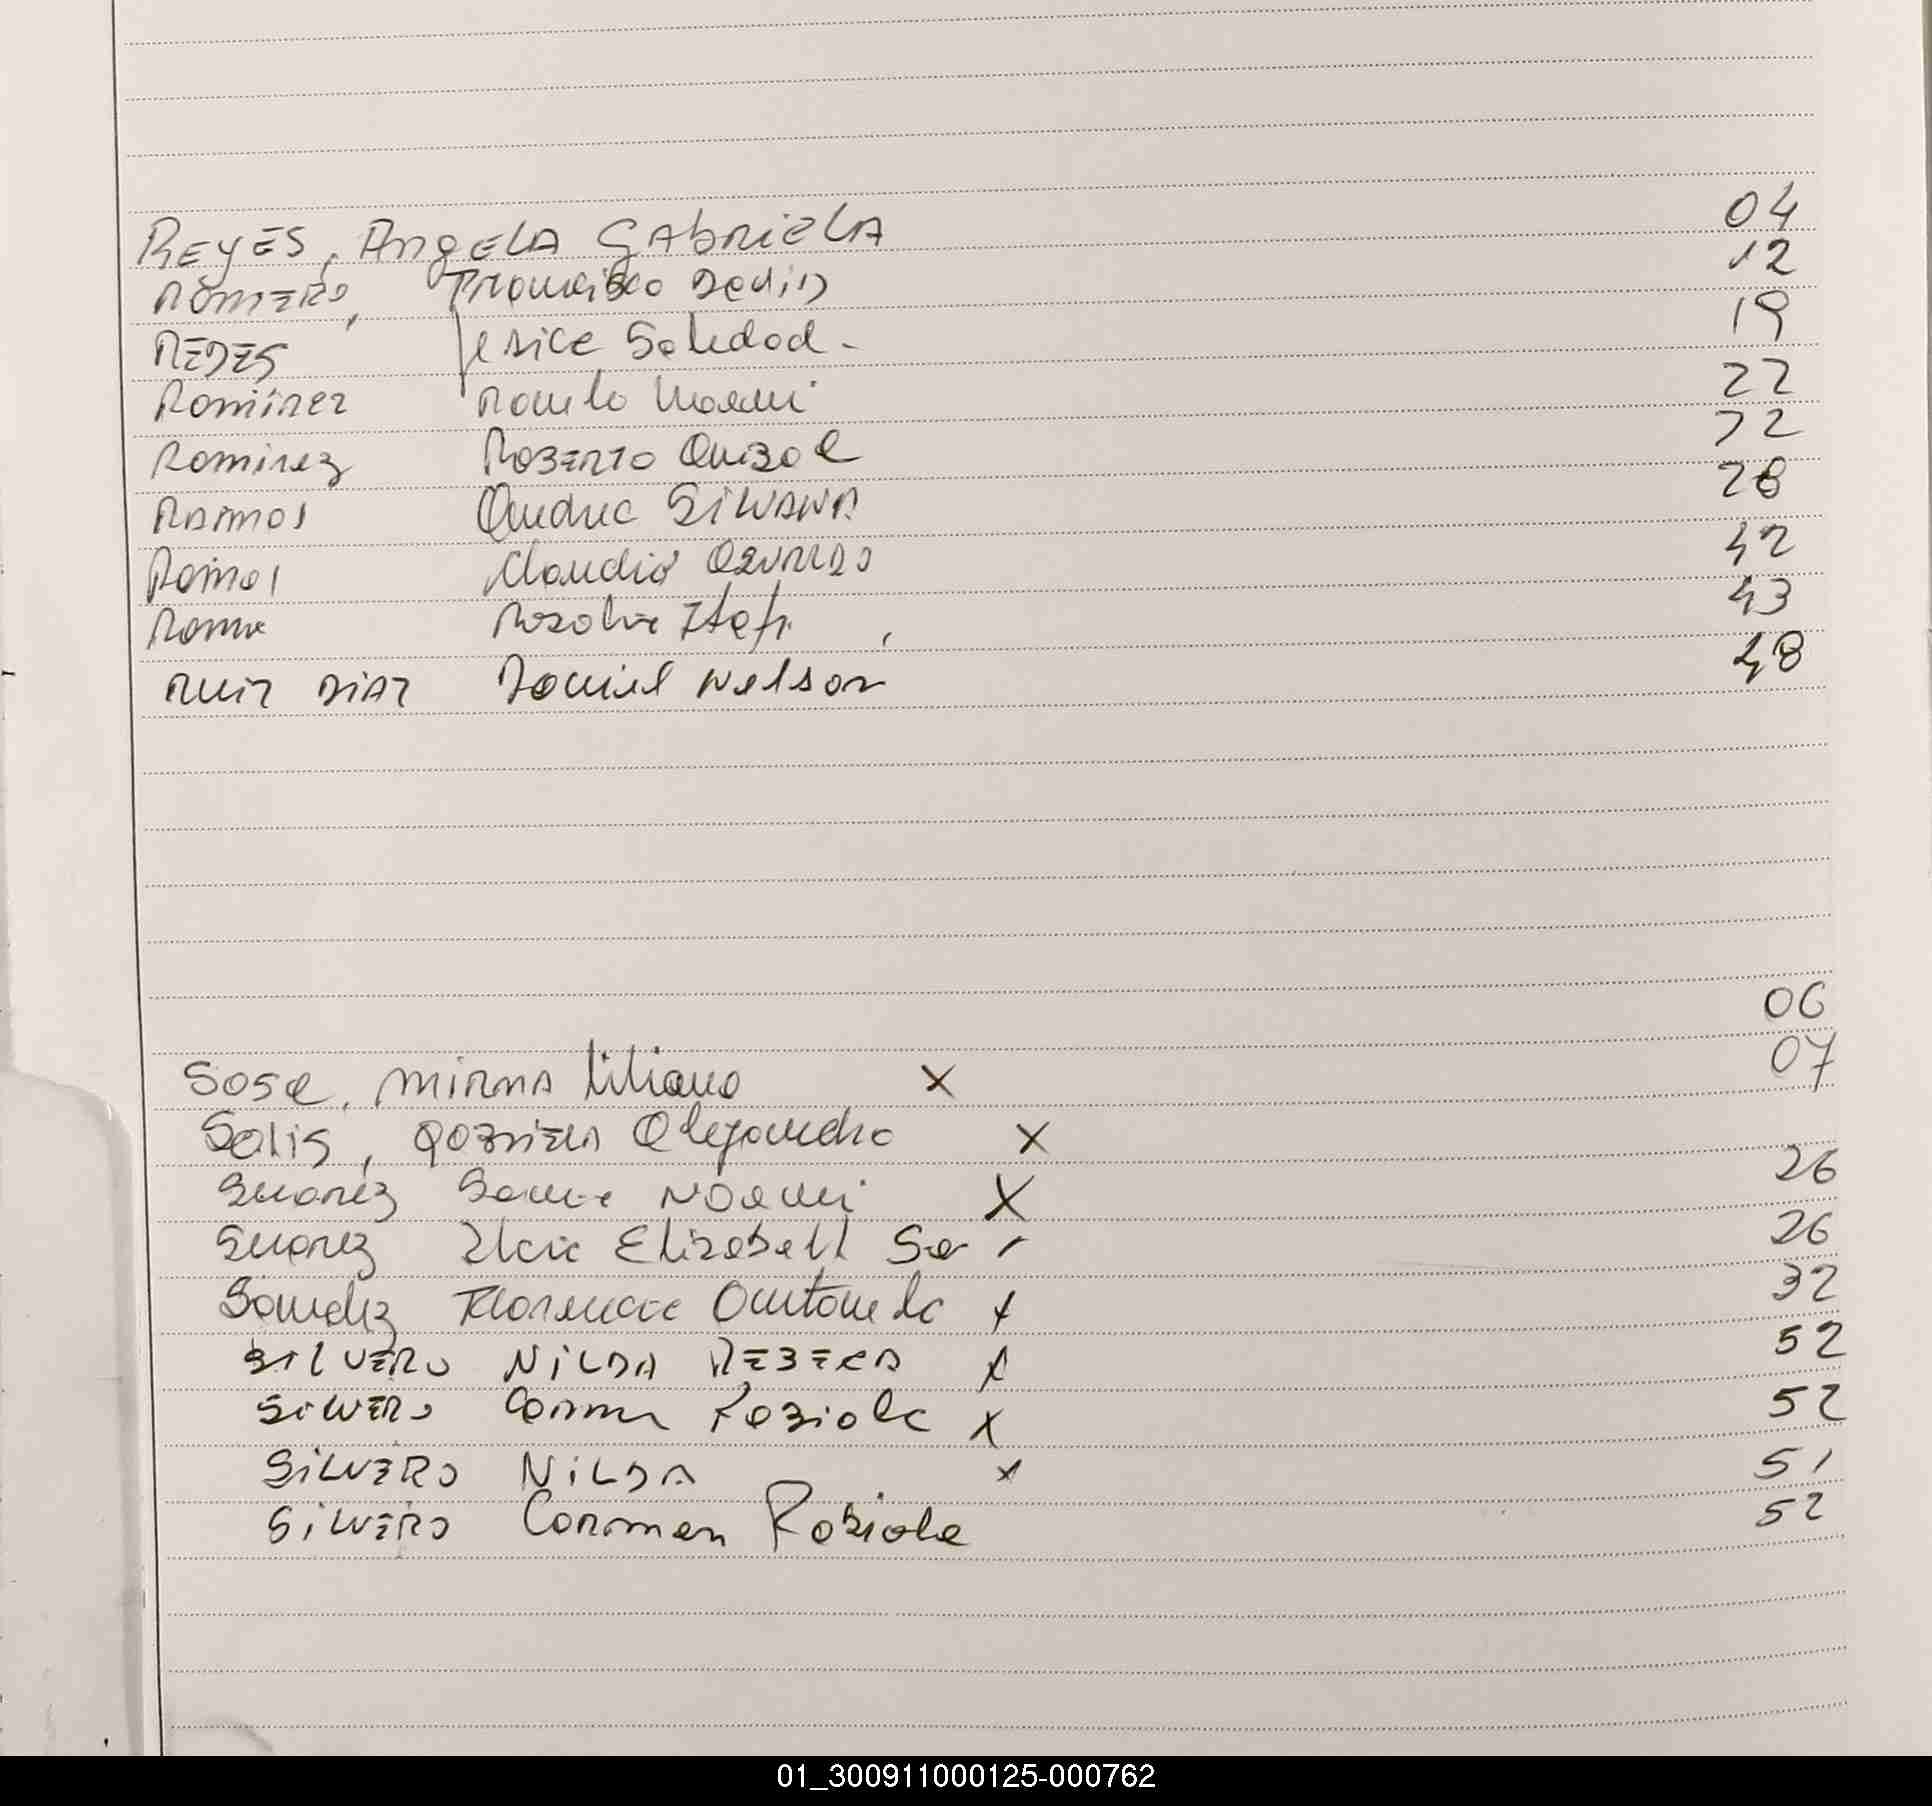 REYES, Angela Gabriela 04
Romero, Francisco David 12
REDES Jesica Soledad - 19
Ramirez Noemi 22
Ramirez Roberto Anibal 22
Ramos Andrea Silvana 28
Ramos Claudio Osvaldo 42
Rosalia 43
Ruiz Diaz Daniel Nelson 48
06
Sosa, Mirna Liliana X 07
Solis, Gabriela Alejandra X
Suarez Noemi X 26
Suarez Elizabeth 26
Sandez Florencia Antonela X 32
Silvero Nilda Rebeca X 52
Silvero Carmen Fabiola X 52
Silvero Nilda X 51
Silvero Carmen Fabiola 52
01_300911000125-000762